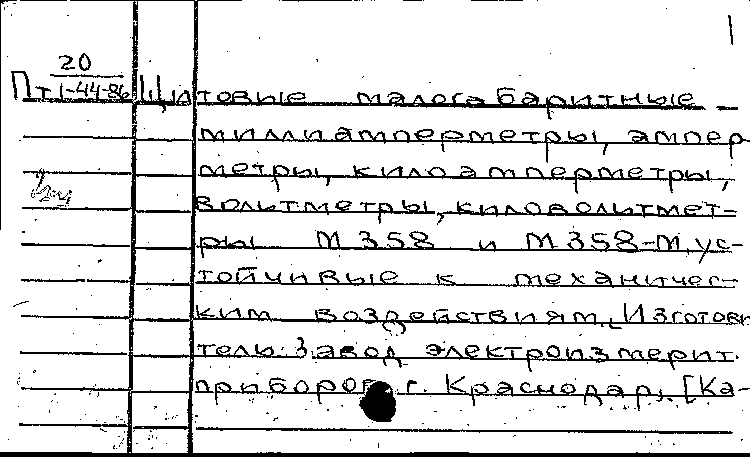 20
Пт 1-44-86 Щитовые малогабаритные
миллиамперметры, ампер
метры, килоамперметры,
вольтметры, киловольтмет-
ры М358 и М358-М, ус-
тойчивые к механичес-
ким воздействиям. Изготови
тель: Завод электроизмерит.
приборов г. Краснодар. [Ка-